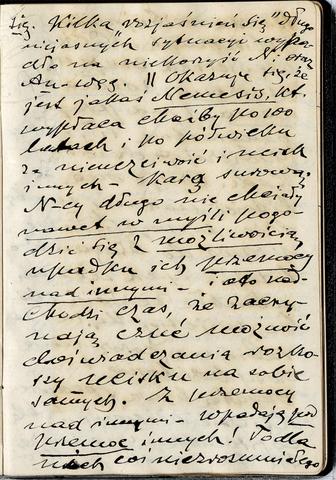 się. Kilka rozjaśnień się "długo
niejasnych sytuacyi wypa-
dło na niekorzyść N. oraz
Au-węg. || Okazuje się, że
jest jakaś Nemesis, kt.
wypłaca choćby po 100
latach i po półwieku
za nieuczciwość i ucisk
innych - karą surową.
N-cy długo nie chcieli
nawet w myśli pogo-
dzić się z możliwością
upadku ich przemocy
nad innymi - i oto nad-
chodzi czas, że zaczy-
nają czuć możność
doświadczania rozko-
szy ucisku na sobie
samych. Z przemocy
nad innymi - wpadają pod
przemoc innych! To dla
nich coś niezrozumiałego